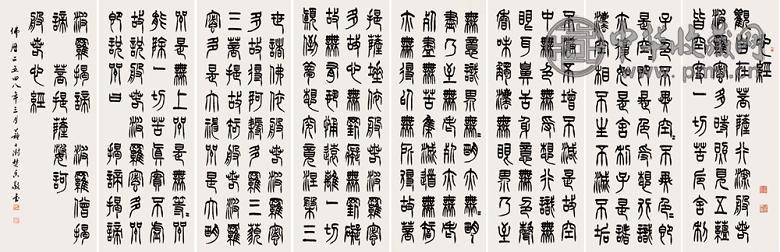 心經
觀自在菩薩行深般若
波羅蜜多時照見五蘊
皆空度一切苦厄舍利
子色不異空=不異色=
即是空=即是色受想行識
亦復如是舍利子是諸
法空相不生不滅不垢
不淨不增不減是故空
中無色無受想行識無
眼耳鼻舌身意無色聲
香味觸法無眼界乃至
無意識界無=明亦無=
明盡乃至無老死亦無老
死盡無苦集滅道無智
亦無得以無所得故菩
提薩埵依般若波羅蜜
多故心無罣礙無罣礙
故無有恐怖遠離一切
顛倒夢想究竟涅槃三
世諸佛依般若波羅蜜
多故得阿耨多羅三藐
三菩提故知般若波羅
蜜多是大神咒是大明
咒是無上咒是無等=咒
能除一切苦真實不虛
故說般若波羅蜜多咒
即說咒曰 揭諦揭諦
波羅揭諦 波羅僧揭
諦 菩提薩婆訶
般若心經
佛曆二五四八年三月
中华收藏网